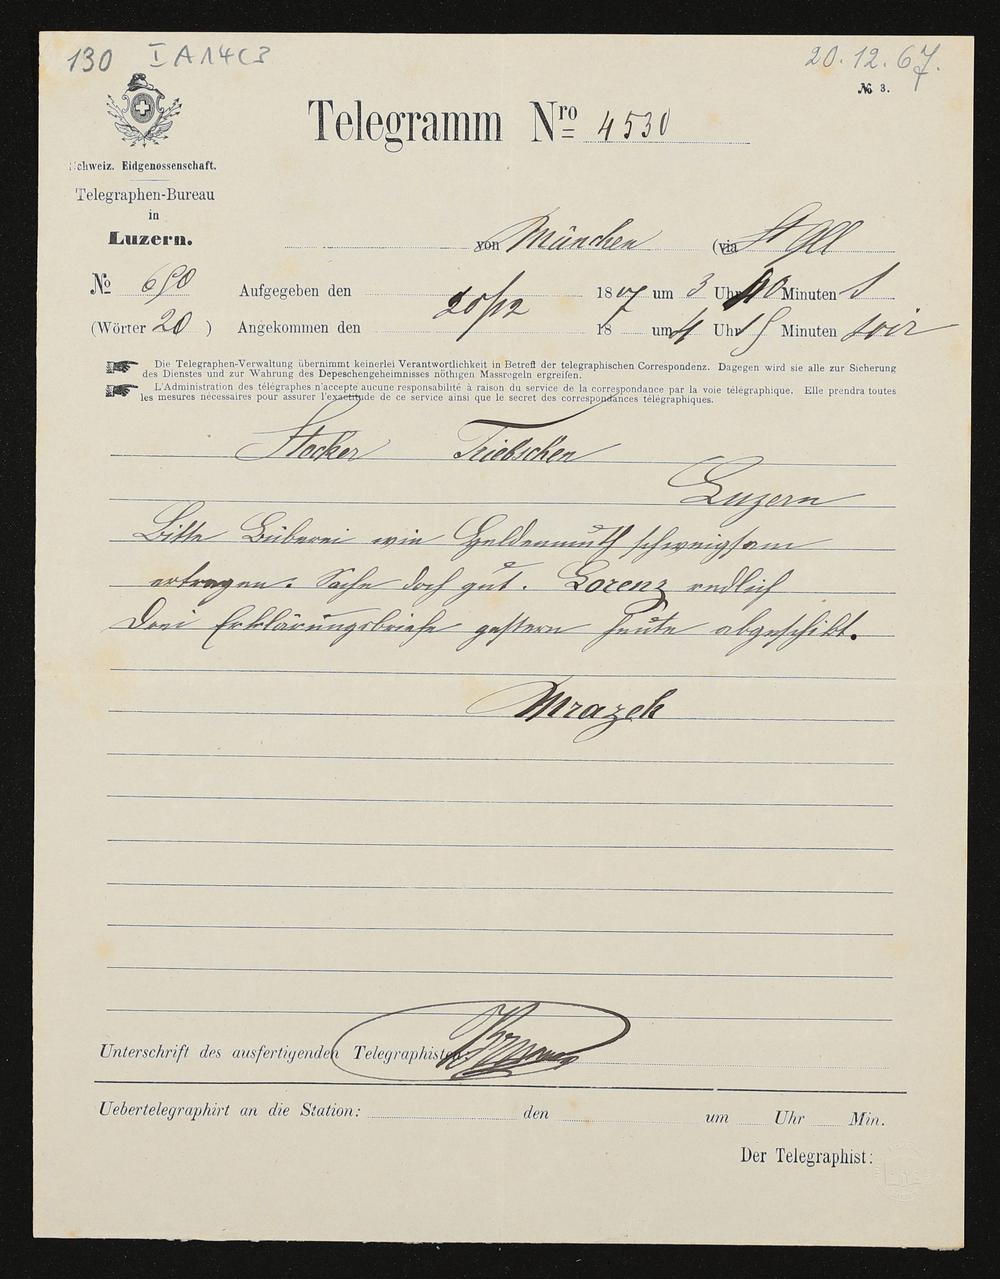 130 I A 14 C 3
20.12.67.
№ 3.
Telegramm Nro 4530
Schweiz. Eidgenossenschaft.
Telegraphen-Bureau
in
Luzern.
von München (via St Gll
No 690 Aufgegeben den 20/12 1867 um 3 Uhr 40 Minuten s
(Wörter 20 ) Angekommen den 18 um 4 Uhr 15 Minuten soir
Die Telegraphen-Verwaltung übernimmt keinerlei Verantwortlichkeit in Betreff der telegraphischen Correspondenz. Dagegen wird sie alle zur Sicherung
des Dienstes und zur Wahrung des Depeschengeheimnisses nöthigen Massregeln ergreifen.
L'Administration des télégraphes n'accepte aucune responsabilité à raison du service de la correspondance par la voie télégraphique. Elle prendra toutes
les mesures nécessaires pour assurer l'exactitude de ce service ainsi que le secret des correspondances télégraphiques.
Stocker Triebschen
Luzern
Bitte Büberei wie Heldenmuth schweigsam
ertragen. Sache doch gut. Lorenz redlich
Drei Erklärungsbriefe gestern heute abgeschikt.
Mrazek
Unterschrift des ausfertigenden Telegraphisten:
Uebertelegraphirt an die Station: den um Uhr Min.
Der Telegraphist: